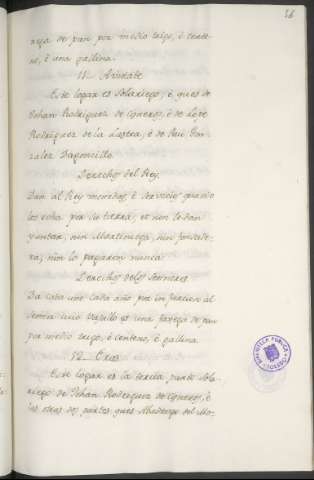 56
nega de pan por medio trigo, è cente-
no, è una gallina.
Este logar es Solariego, è que es de
Johan Rodriguez de Cisneros, è de Lope
Rodriguez de la Lastra, è de Rui Gon-
zalez
Derechos del Rey.
Dan al Rey monedas, è servicios quando
los echa por su tierra; et non le dan
yantar, nin Martiniega, nin fonsade-
ra, nin lo pagaron nunca.
Derechos de los Sennores
Da cada uno cada año por infurcion al
Sennor cuio vasallo es una fanega de pan
por medio trigo, è centeno, è gallina.
Este logar es la tercia parte Sola-
riego de Johan Rodriguez de Cisneros, è
las otras dos partes, que es Abadengo del Mo-
BIBLIOTECA PUBLICA